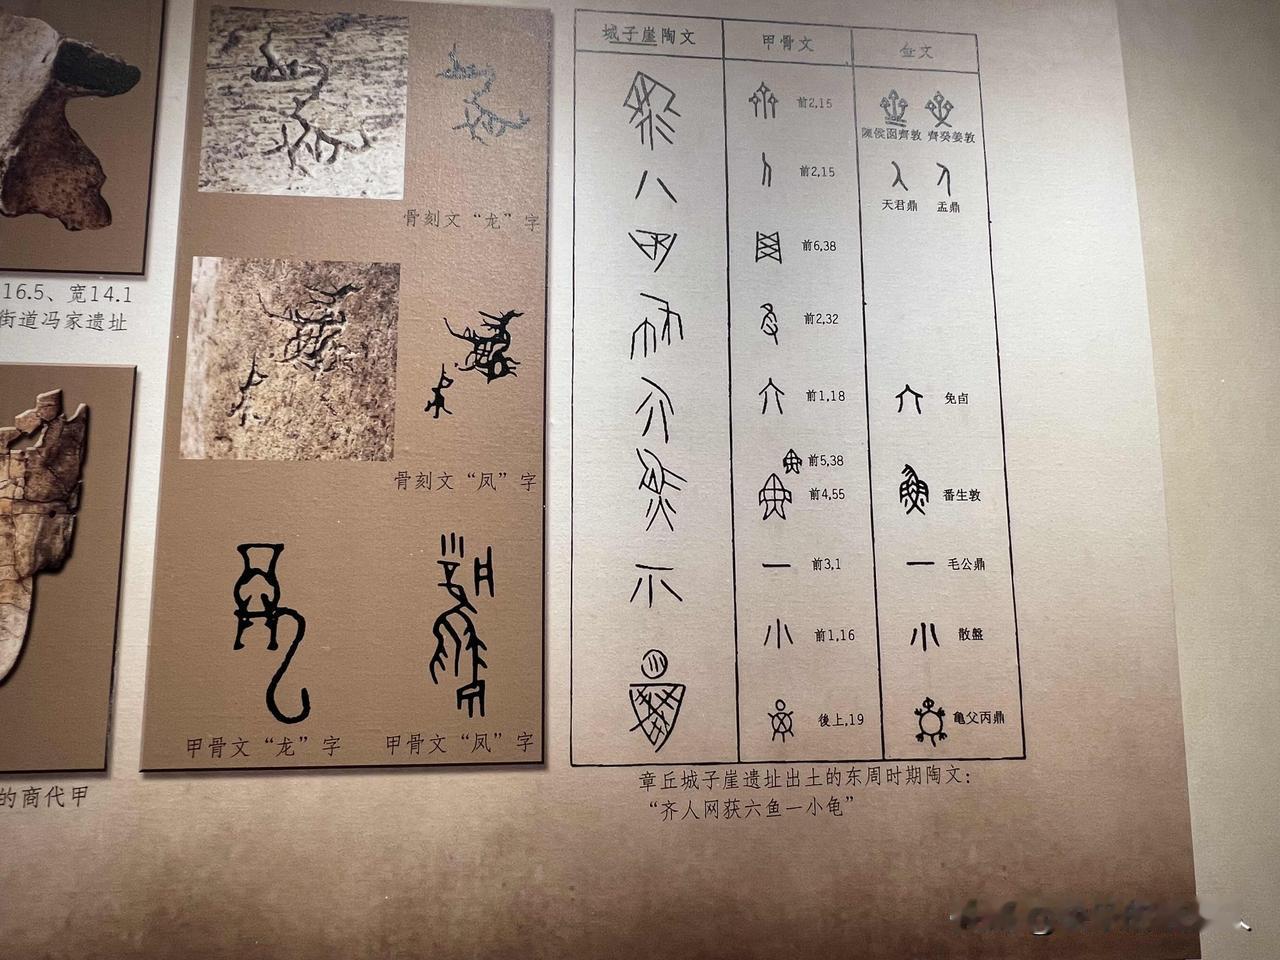 16.5、宽14.1
街道冯家遗址
的商代甲
骨刻文“龙”字
骨刻文“凤”字
甲骨文“龙”字
甲骨文“凤”字
城子崖陶文 甲骨文 金文
前2,15 陳侯因齊敦 齊癸姜敦
前2,15 天君鼎 盂鼎
前6,38
前2,32
前1,18 免卣
前5,38
前4,55 番生敦
前3,1 毛公鼎
前1,16 散盤
後上,19 龟父丙鼎
章丘城子崖遗址出土的东周时期陶文：
“齐人网获六鱼一小龟”